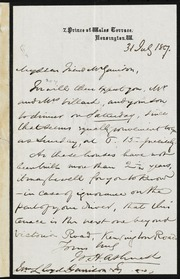 7, Prince of Wales Terrace,
Kensington, W.
31 July 1867.
My dear Friend Mr Garrison,
I will thus expect you, Mr
and Mrs Villard, and your son
to dinner on Saturday, since
that seems equally convenient to you
as Sunday, at 5.15 precisely.
As these houses have not
been numbered more than years,
it may be well for you to know
in case of ignorance on the
part of your driver, that this
Terrace is the next one beyond
Victoria Road, Kensington Road
Yours truly
Wm Lloyd Garrison Esq